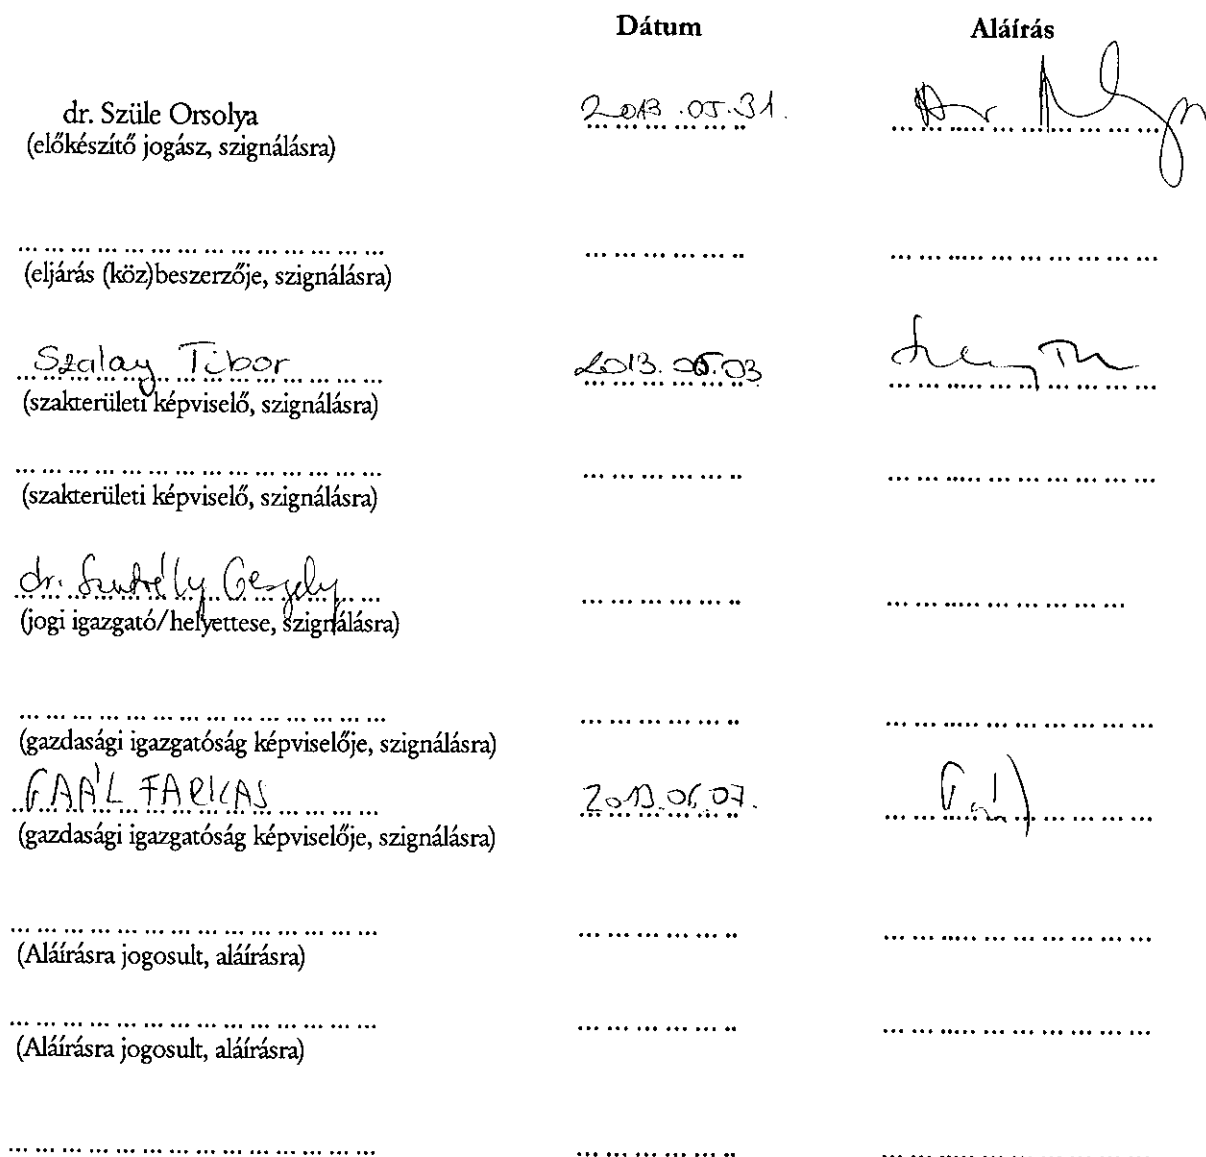 Dátum Aláírás
dr. Szüle Orsolya 2013.05.31.
(előkészítő jogász, szignálásra)
... ... ... ... ... ... ... ... ... ... ... ... ... ... ... ... ... ... ... .. ... ... ..... ... ... ... ... ... ...
(eljárás (köz)beszerzője, szignálásra)
Szalay Tibor 2013. 06.03
(szakterületi képviselő, szignálásra)
... ... ... ... ... ... ... ... ... ... ... ... ... ... ... ... ... ... ... .. ... ... ..... ... ... ... ... ... ...
(szakterületi képviselő, szignálásra)
dr. Gergely ... ... ... ... ... .. ... ... ..... ... ... ... ... ...
(jogi igazgató/helyettese, szignálásra)
... ... ... ... ... ... ... ... ... ... ... ... ... ... ... ... ... ... ... .. ... ... ..... ... ... ... ... ... ...
(gazdasági igazgatóság képviselője, szignálásra)
GAÁL FARKAS 2013.06.07.
(gazdasági igazgatóság képviselője, szignálásra)
... ... ... ... ... ... ... ... ... ... ... ... ... ... ... ... ... ... ... .. ... ... ..... ... ... ... ... ... ...
(Aláírásra jogosult, aláírásra)
... ... ... ... ... ... ... ... ... ... ... ... ... ... ... ... ... ... ... .. ... ... ..... ... ... ... ... ... ...
(Aláírásra jogosult, aláírásra)
... ... ... ... ... ... ... ... ... ... ... ... ... ... ... ... ... ... ... .. ... ... ..... ... ... ... ... ... ...